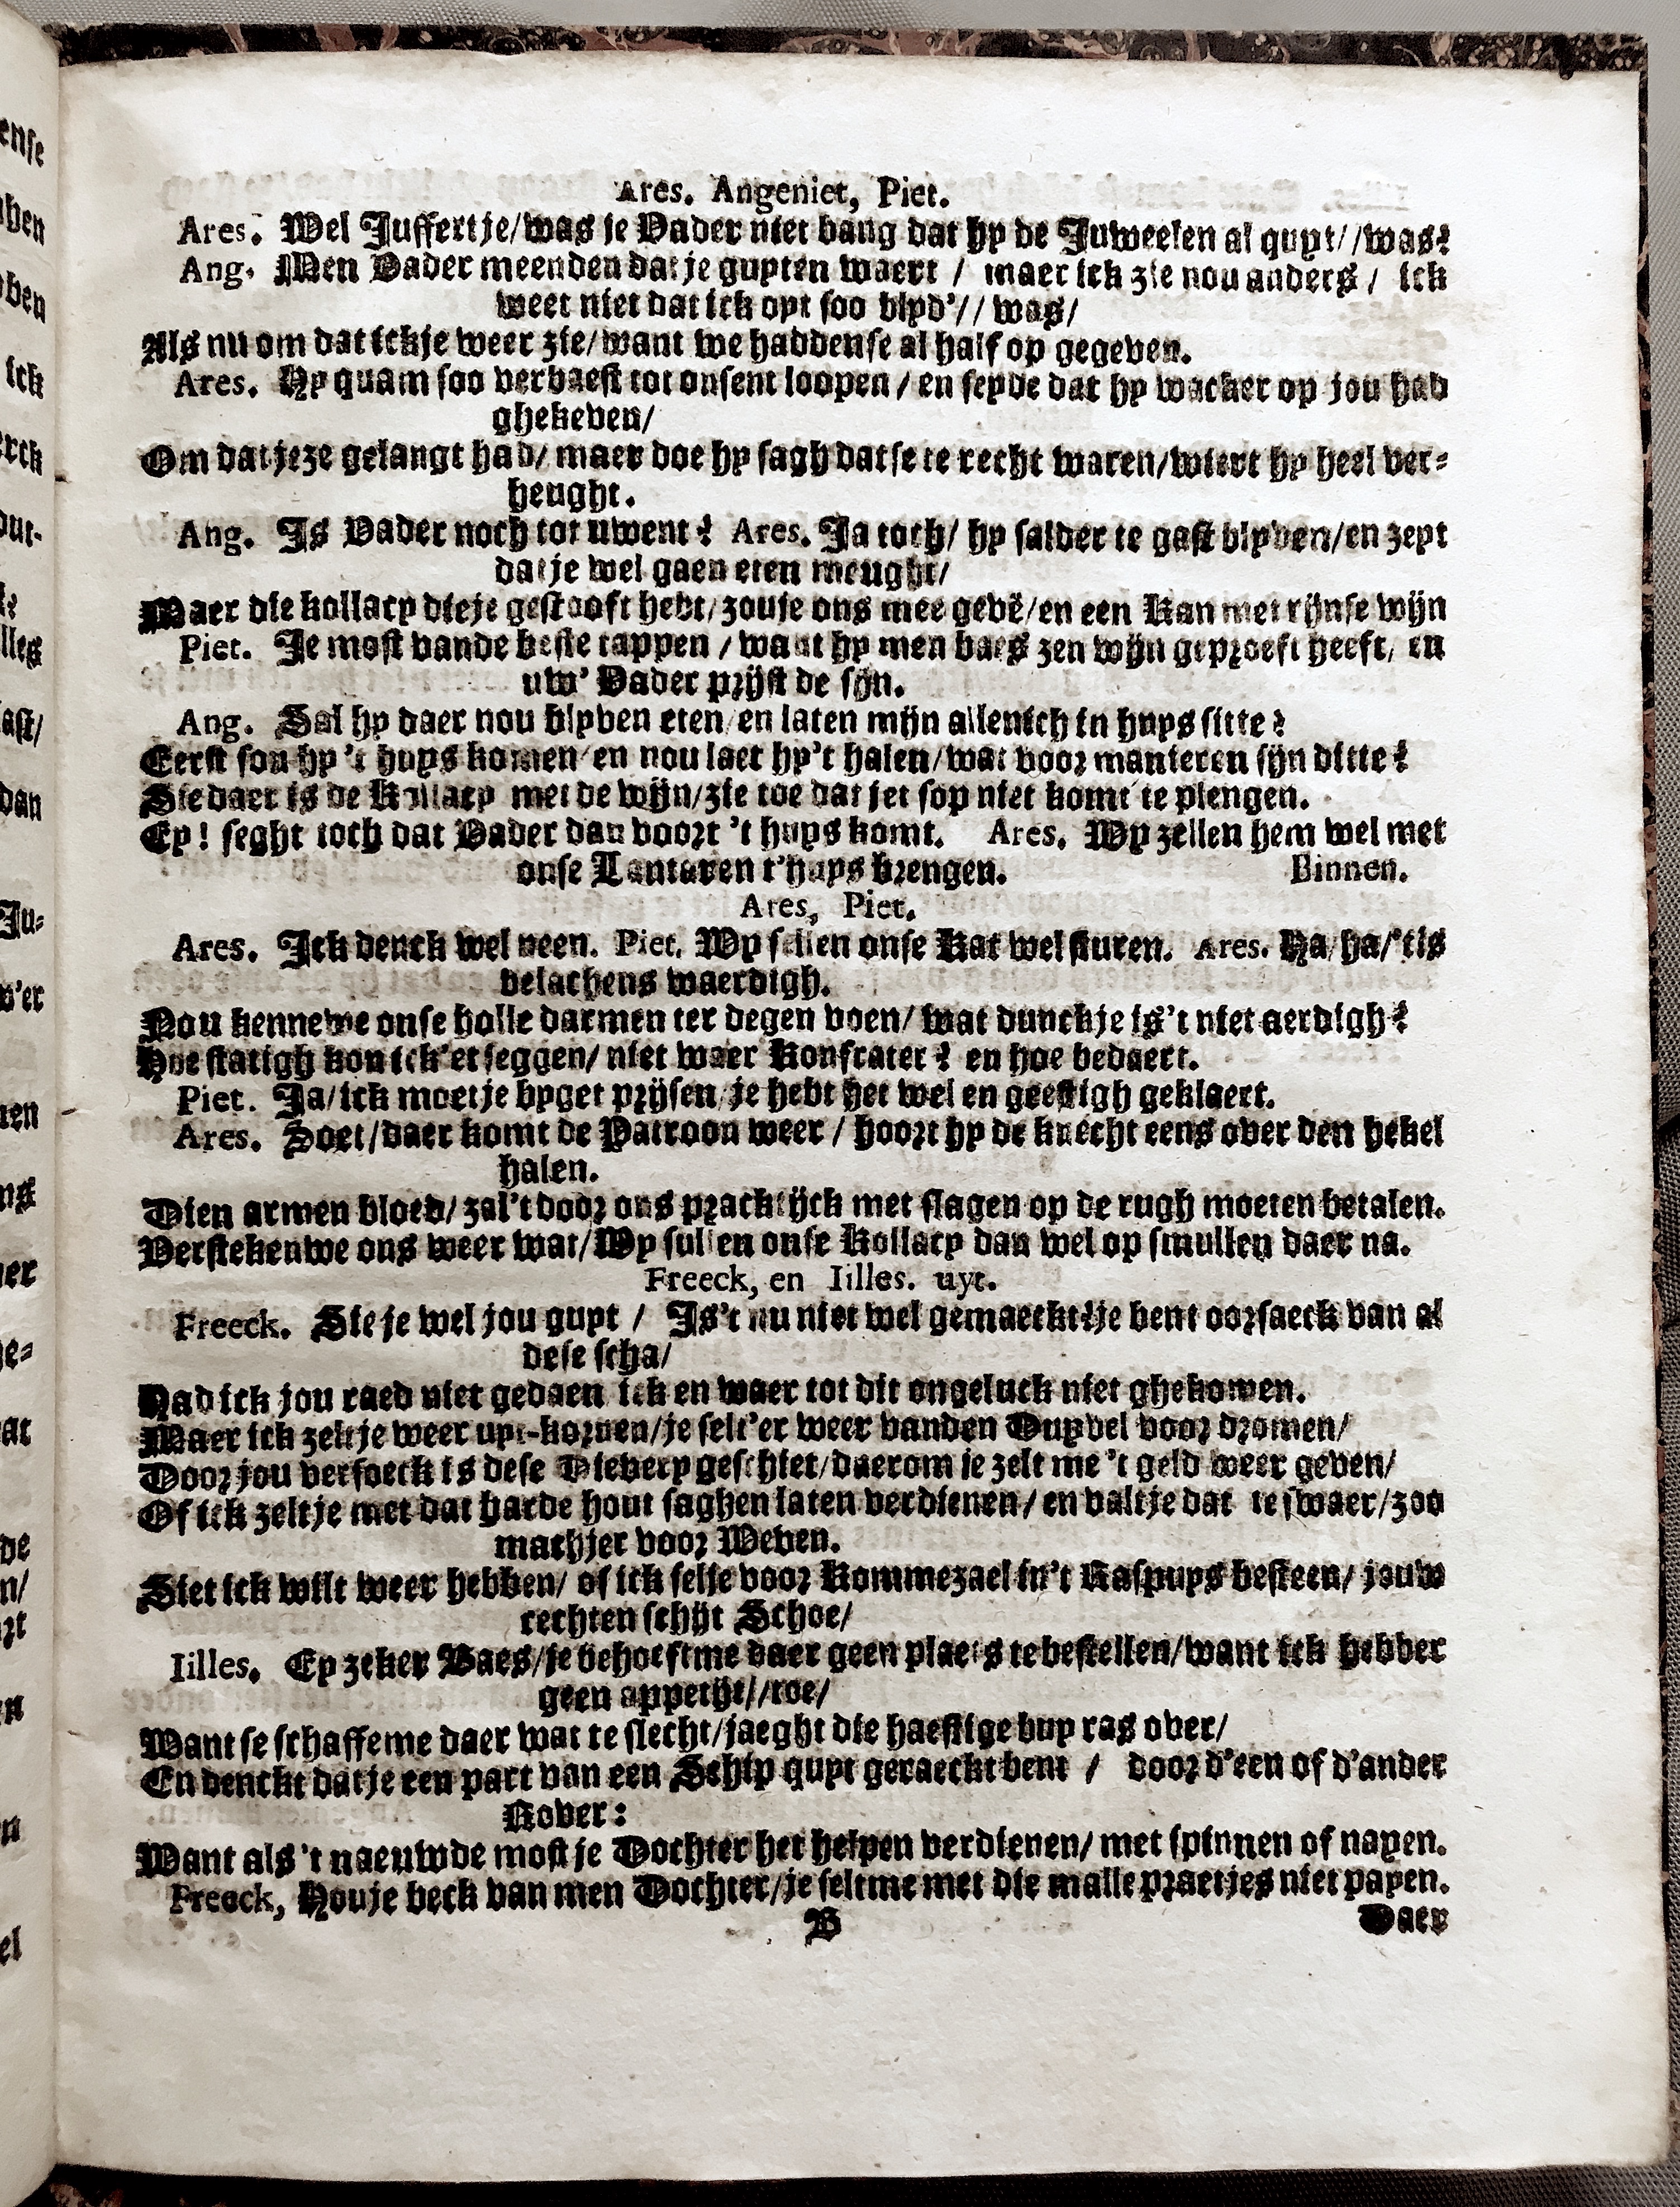 Ares. Angeniet, Piet.
Ares. Wel Juffertje/was je Vader niet bang dat hy de Juweelen al quyt//was?
Ang. Men Vader meenden dat je guyten waert / maer ick zie nou anders / ick
weet niet dat ick oyt soo blyd'// was/
Als nu om dat ickje weer zie/want we haddense al half op gegeven.
Ares. Hy quam soo verbaest tot onsent loopen / en seyde dat hy wacker op jou had
ghekeven/
Om dat jeze gelangt had/ maer doe hy sagh datse te recht waren/wiert hy heel ver-
heught.
Ang. Is Vader noch tot uwent? Ares. Ja toch/ hy salder te gast blyven/en zeyt
dat je wel gaen eten meught/
Maer die kollacy dieje gestooft hebt/zouje ons mee gevē/en een Kan met rijnse wijn
Piet. Je most vande beste tappen / want hy men baes zen wijn geproeft heeft, en
uw' Vader prijst de sijn.
Ang. Sal hy daer nou blyven eten/en laten mijn allenich in huys sitte?
Eerst sou hy 't huys komen/en nou laet hy't halen/wat voor manieren sijn ditte?
Sie daer is de Kollacy met de wijn/zie toe dat jet sop niet komt te plengen.
Ey! seght toch dat Vader dan voort 't huys komt. Ares. Wy zellen hem wel met
onse Lantaren t'huys brengen. Binnen.
Ares, Piet.
Ares. Ick denck wel neen. Piet. Wy sellen onse Kat wel sturen. Ares. Ha/ha/'tis
belachens waerdigh.
Nou kennewe onse holle darmen ter degen voen/ wat dunckje is't niet aerdigh?
Hoe statigh kon ick'et seggen/ niet waer Konfrater? en hoe bedaert.
Piet. Ja/ick moetje byget prijsen/je hebt het wel en geestigh geklaert.
Ares. Soet/daer komt de Patroon weer / hoort hy de knecht eens over den hekel
halen.
Dien armen bloed/zal't door ons pracktijck met slagen op de rugh moeten betalen.
Verstekenwe ons weer wat/Wy sullen onse Kollacy dan wel op smullen daer na.
Freeck, en Iilles. uyt.
Freeck. Sie je wel jou guyt / Is't nu niet wel gemaeckt?je bent oorsaeck van al
dese scha/
Had ick jou raed niet gedaen ick en waer tot dit ongeluck niet ghekomen.
Maer ick zeltje weer uyt-kornen/je selt'er weer vanden Duyvel voor dromen/
Door jou versoeck is dese Dievery geschiet/daerom je zelt me 't geld weer geven/
Of ick zeltje met dat harde hout saghen laten verdienen/en valtje dat te swaer/zoo
machjer voor Weven.
Siet ick wilt weer hebben/ of ick selje voor Kommezael in't Raspuys besteen/ jouw
rechten schijt Schoe/
Iilles. Ey zeker Baes/je behoeftme daer geen plaets te bestellen/want ick hebber
geen appetijt//toe/
Want se schaffeme daer wat te slecht/jaeght die haestige buy ras over/
En denckt datje een part van een Schip quyt geraeckt bent / door d'een of d'ander
Rover:
Want als 't naeuwde most je Dochter het helpen verdienen/ met spinnen of nayen.
Freeck, Houje beck van men Dochter/je seltme met die malle praetjes niet payen.
B Daer